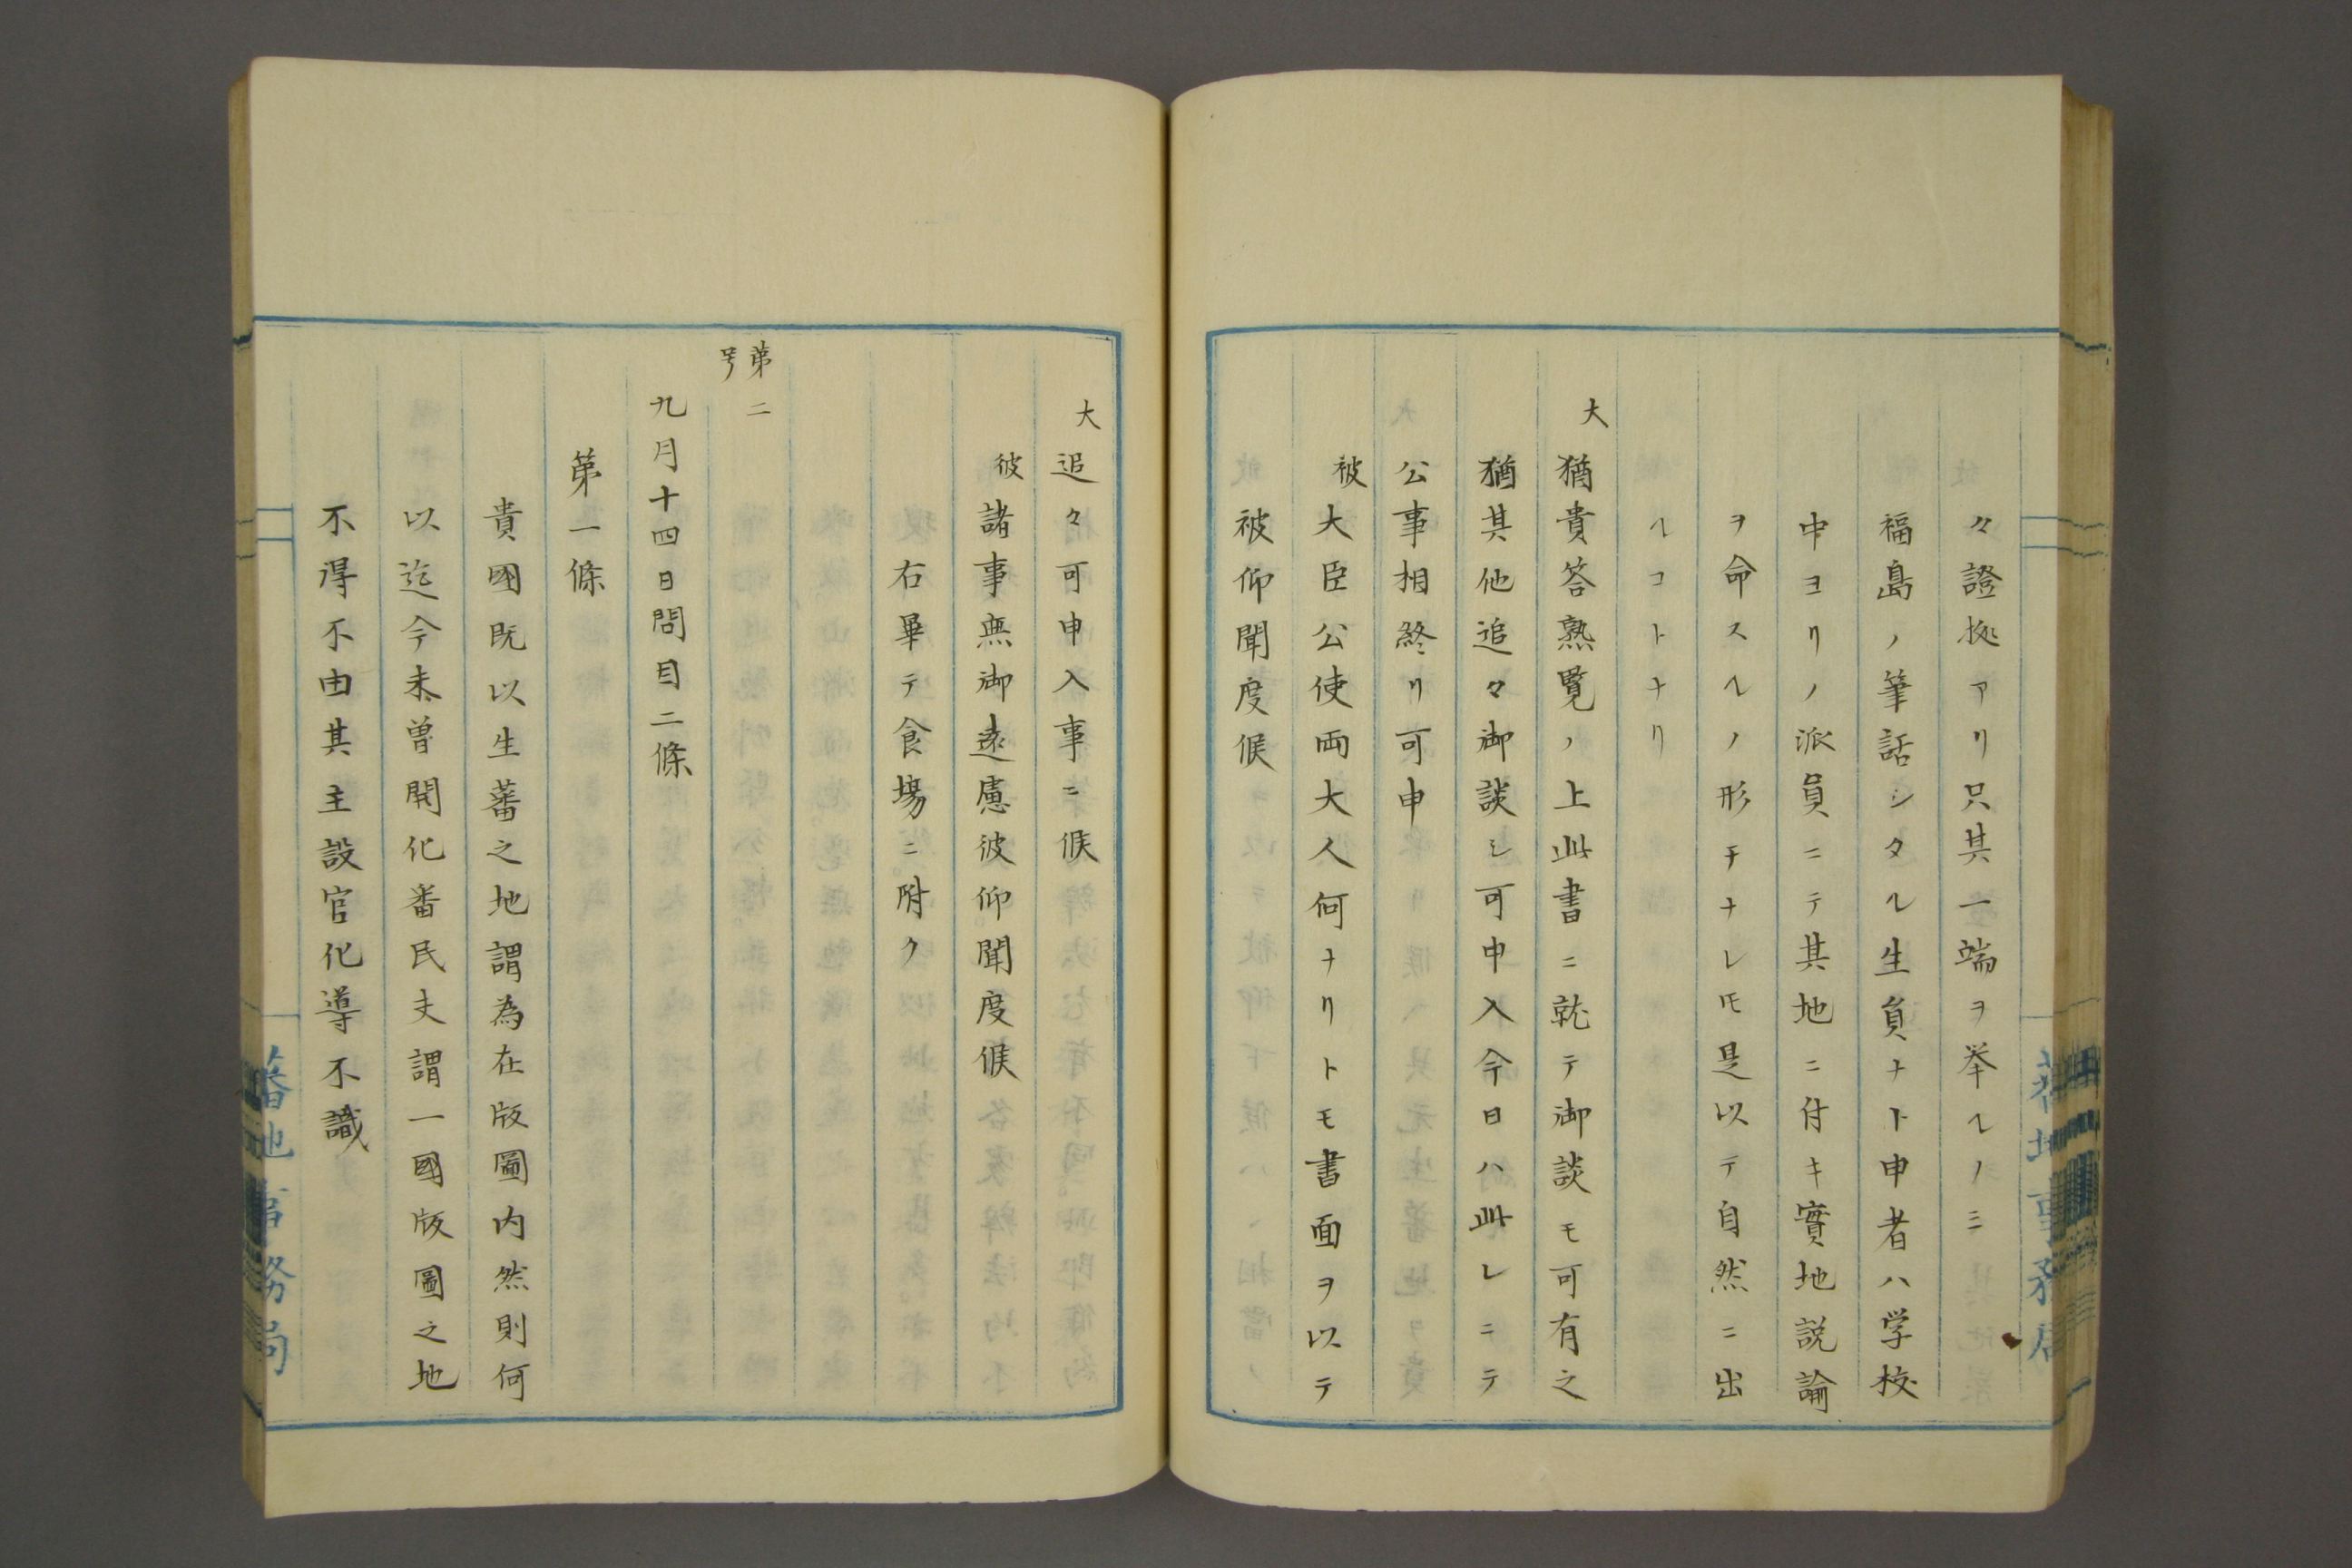 々證拠アリ只其一端ヲ挙ルノミ
福島ノ筆話シタル生員ナト申者ハ学校
中ヨリノ派員ニテ其地ニ付キ實地説諭
ヲ命スルノ形チナレ𪜈是以テ自然ニ出
ルコトナリ
大 猶貴答熟覧ノ上此書ニ就テ御談モ可有之
猶其他追々御談シ可申入今日ハ此レニテ
公事相終リ可申
被 大臣公使両大人何ナリトモ書面ヲ以テ
被仰聞度候
大 追々可申入事ニ候
彼 諸事無御遠慮彼仰聞度候
右畢テ食場ニ附ク
第二号
九月十四日問目二條
第一條
貴國既以生蕃之地謂為在版圖内然則何
以迄今未曽開化番民夫謂一國版圖之地
不得不由其主設官化導不識
蕃地事務局
蕃地事務局